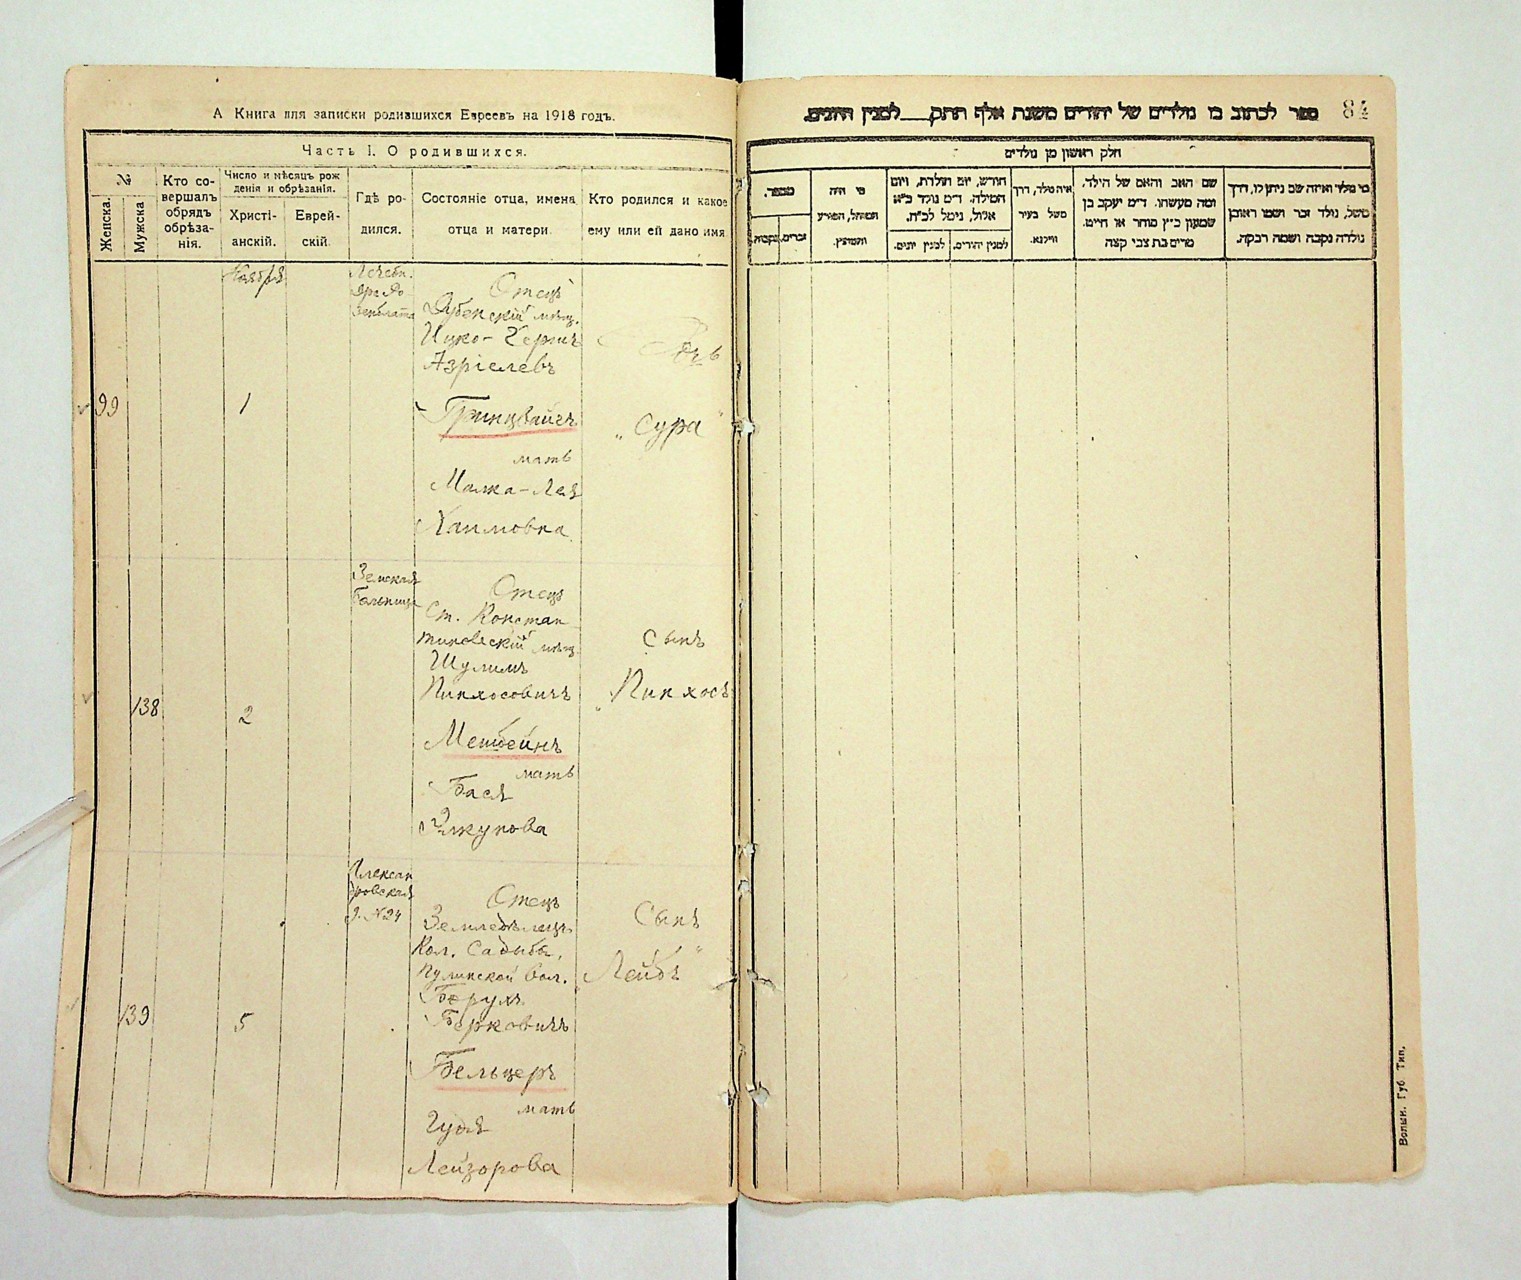 А Книга для записки родившихся Евреевъ на 1918 годъ.
Часть I. О родившихся.
№
Женска.
Мужска
Кто со-
вершалъ
обрядъ
обрѣза-
нія.
Число и мѣсяцъ рож
денія и обрѣзанія.
Христі-
анскій.
Еврей-
скій
Гдѣ ро-
дился.
Состояніе отца, имена
отца и матери
Кто родился и какое
ему или ей дано имя
Ноября
Лечебн.
Отецъ
Дубенскій мѣщ.
Ицко-Герш
Азріелевъ
дчь
99
1
Гринцвайгъ
„Сура“
мать
Малка-Лея
Хаимовна
Земская
больница
Отецъ
Ст. Констан
тиновскій мѣщ.
Шулимъ
Пинхосовичъ
Сынъ
„Пинхосъ
138
2
Мешбейнъ
мать
Бася
Янкулова
Алексан
дровская
д. №24
Отецъ
Земледѣлецъ
Кол. Садыба,
Пулинской вол.
Берулъ
Берковичъ
Сынъ
„Лейбъ“
139
5
Бельцеръ
мать
Гудя
Лейзорова
84
ספר לכתוב בו נולדים של יהודים משנת אלף תתק__ למנין היונים.
חלק ראשון מן נולדים
מספר.
נקבות
זכרים
מי היה
המוהל, הפורע
והמוצץ.
חודש, יום הולדת, ויום
המילה. ד״מ נולד כ״א
אלול, נימל לכ״ח.
למנין יונים.
למנין יהודים.
איה נולד, דרך
משל בעיר
ווילנא.
שם האב והאם של הילד,
ומה מעשהו. ד״מ יעקב בן
שמעון כ״ץ סוחר או חייט.
מרים בת צבי קצה
מי נולד ואיזה שם ניתן לו, דרך
משל, נולד זכר ושמו ראובן
נולדה נקבה ושמה רבקה.
Волын. Губ. Тип.